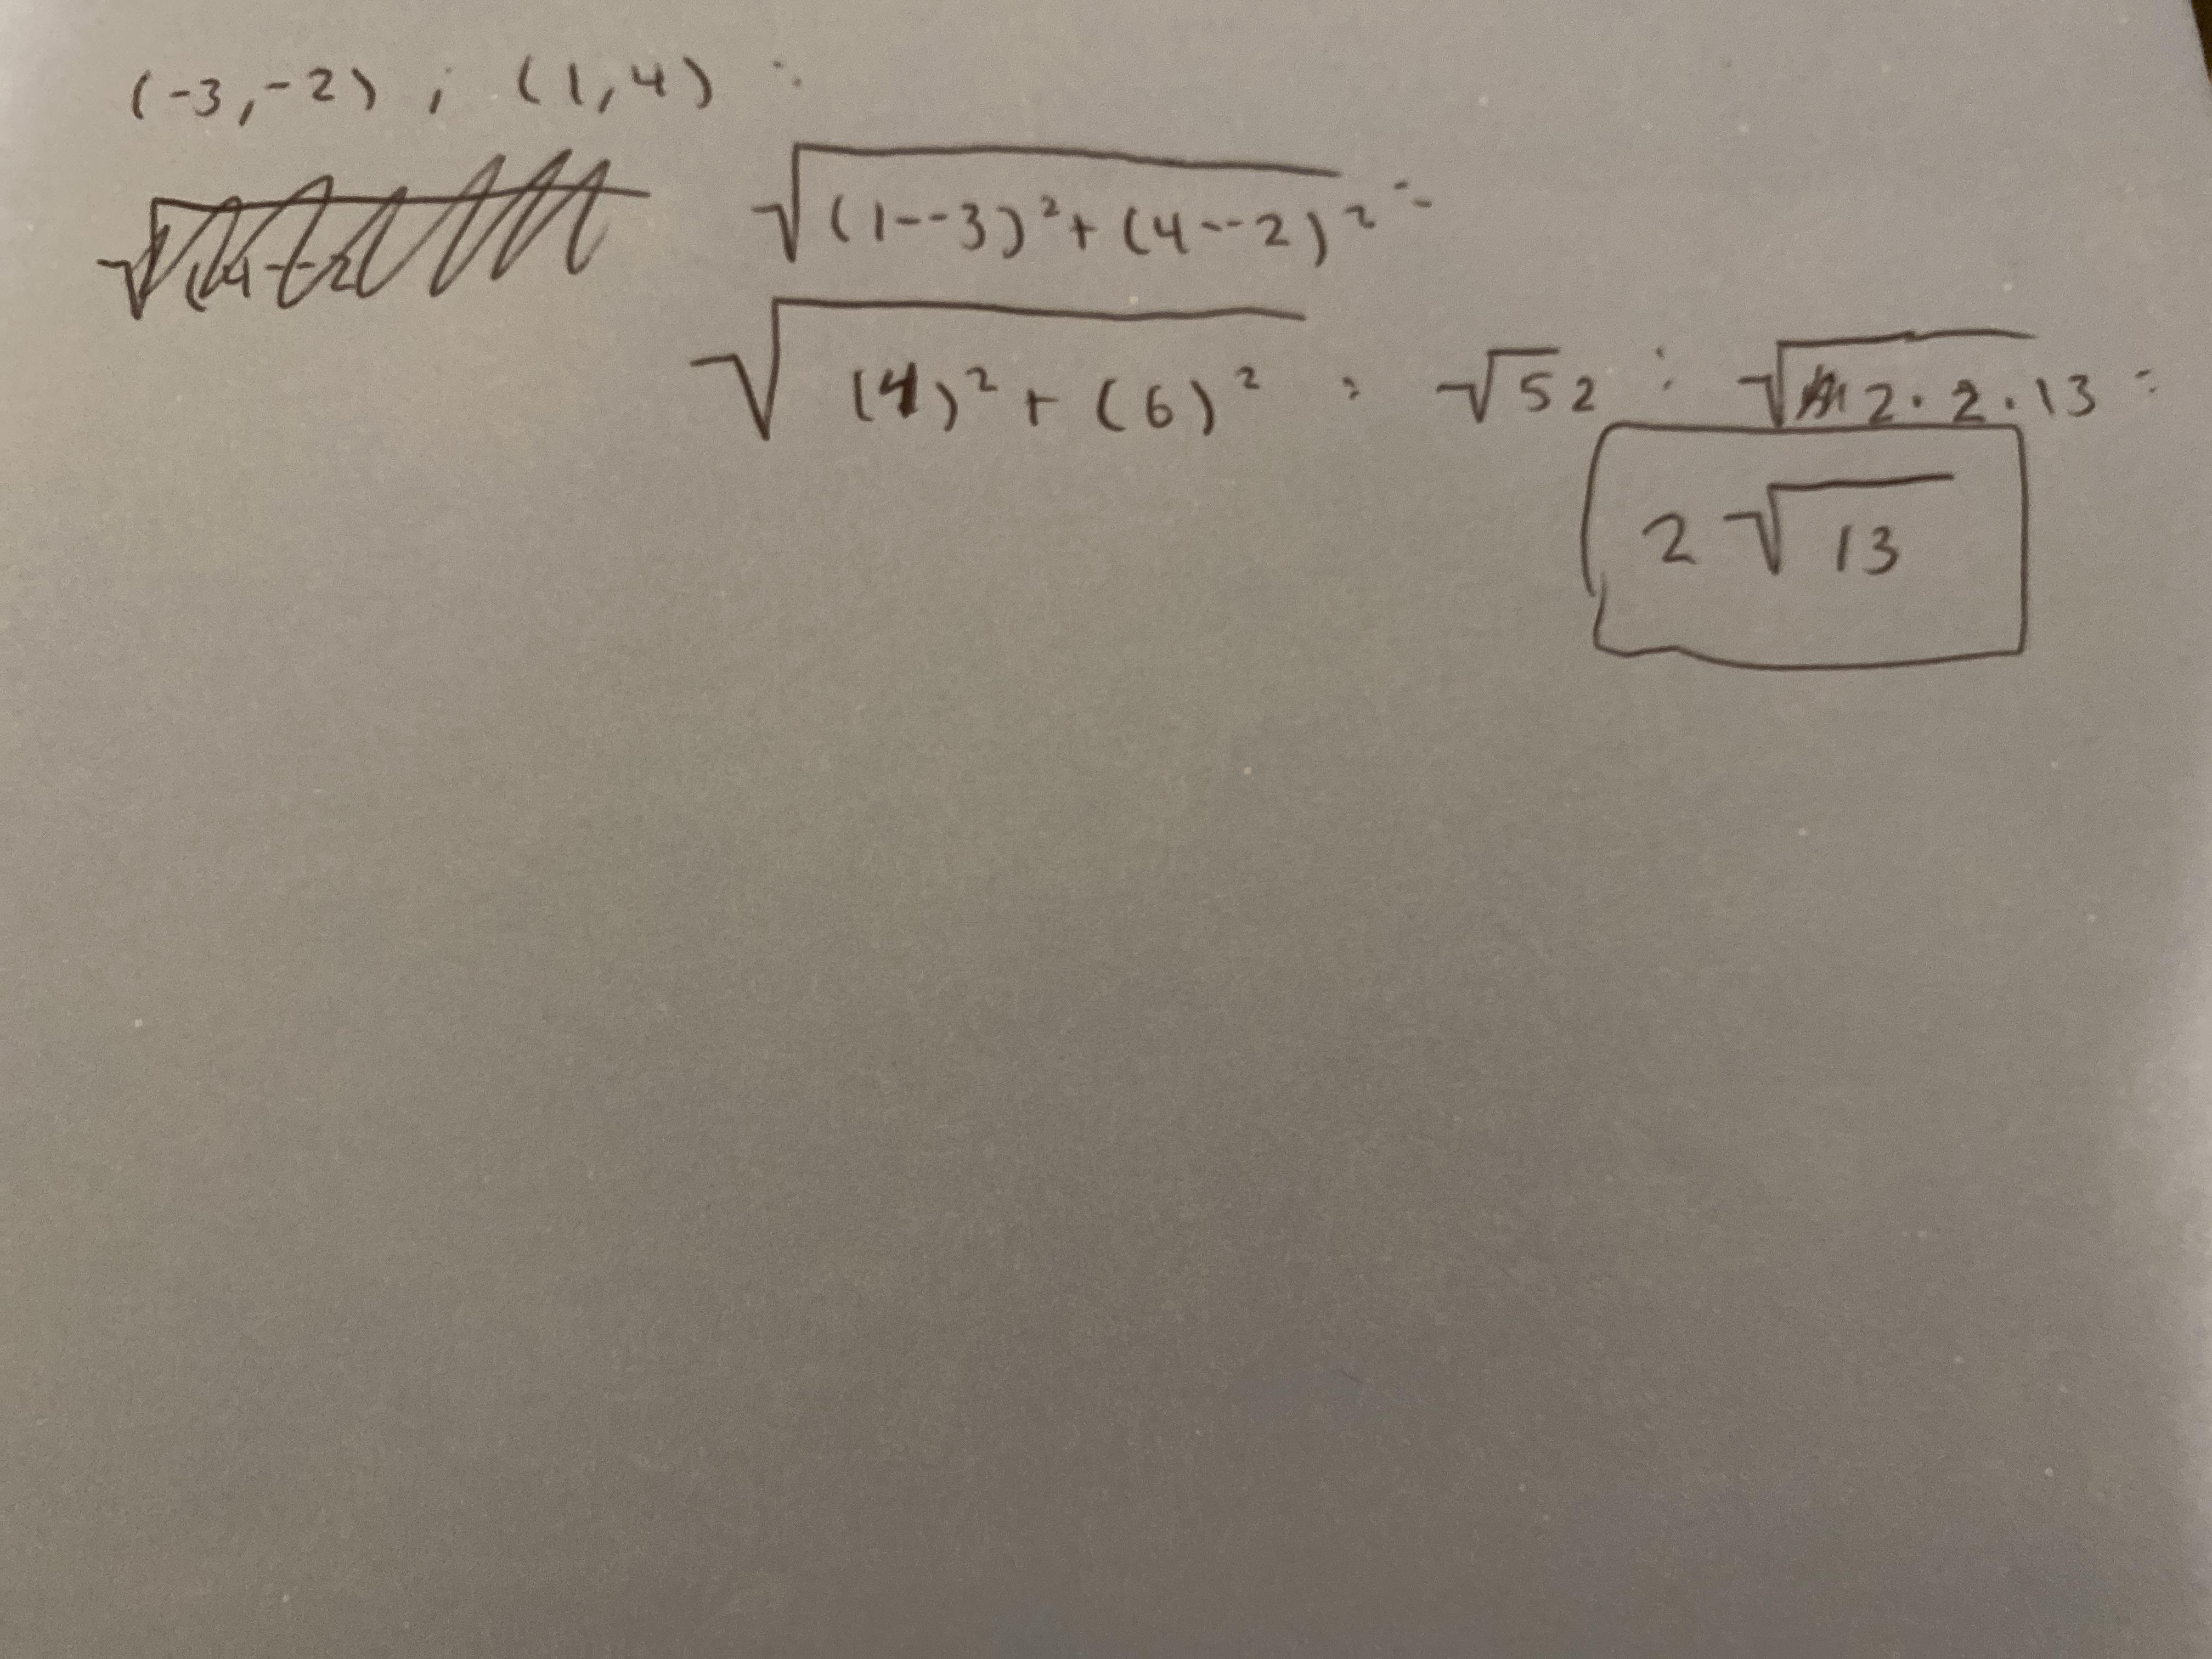 (-3,-2) ; (1,4) :
√(1--3)²+(4--2)² =
√(4)²+(6)² = √52 = √2·2·13 =
2√13